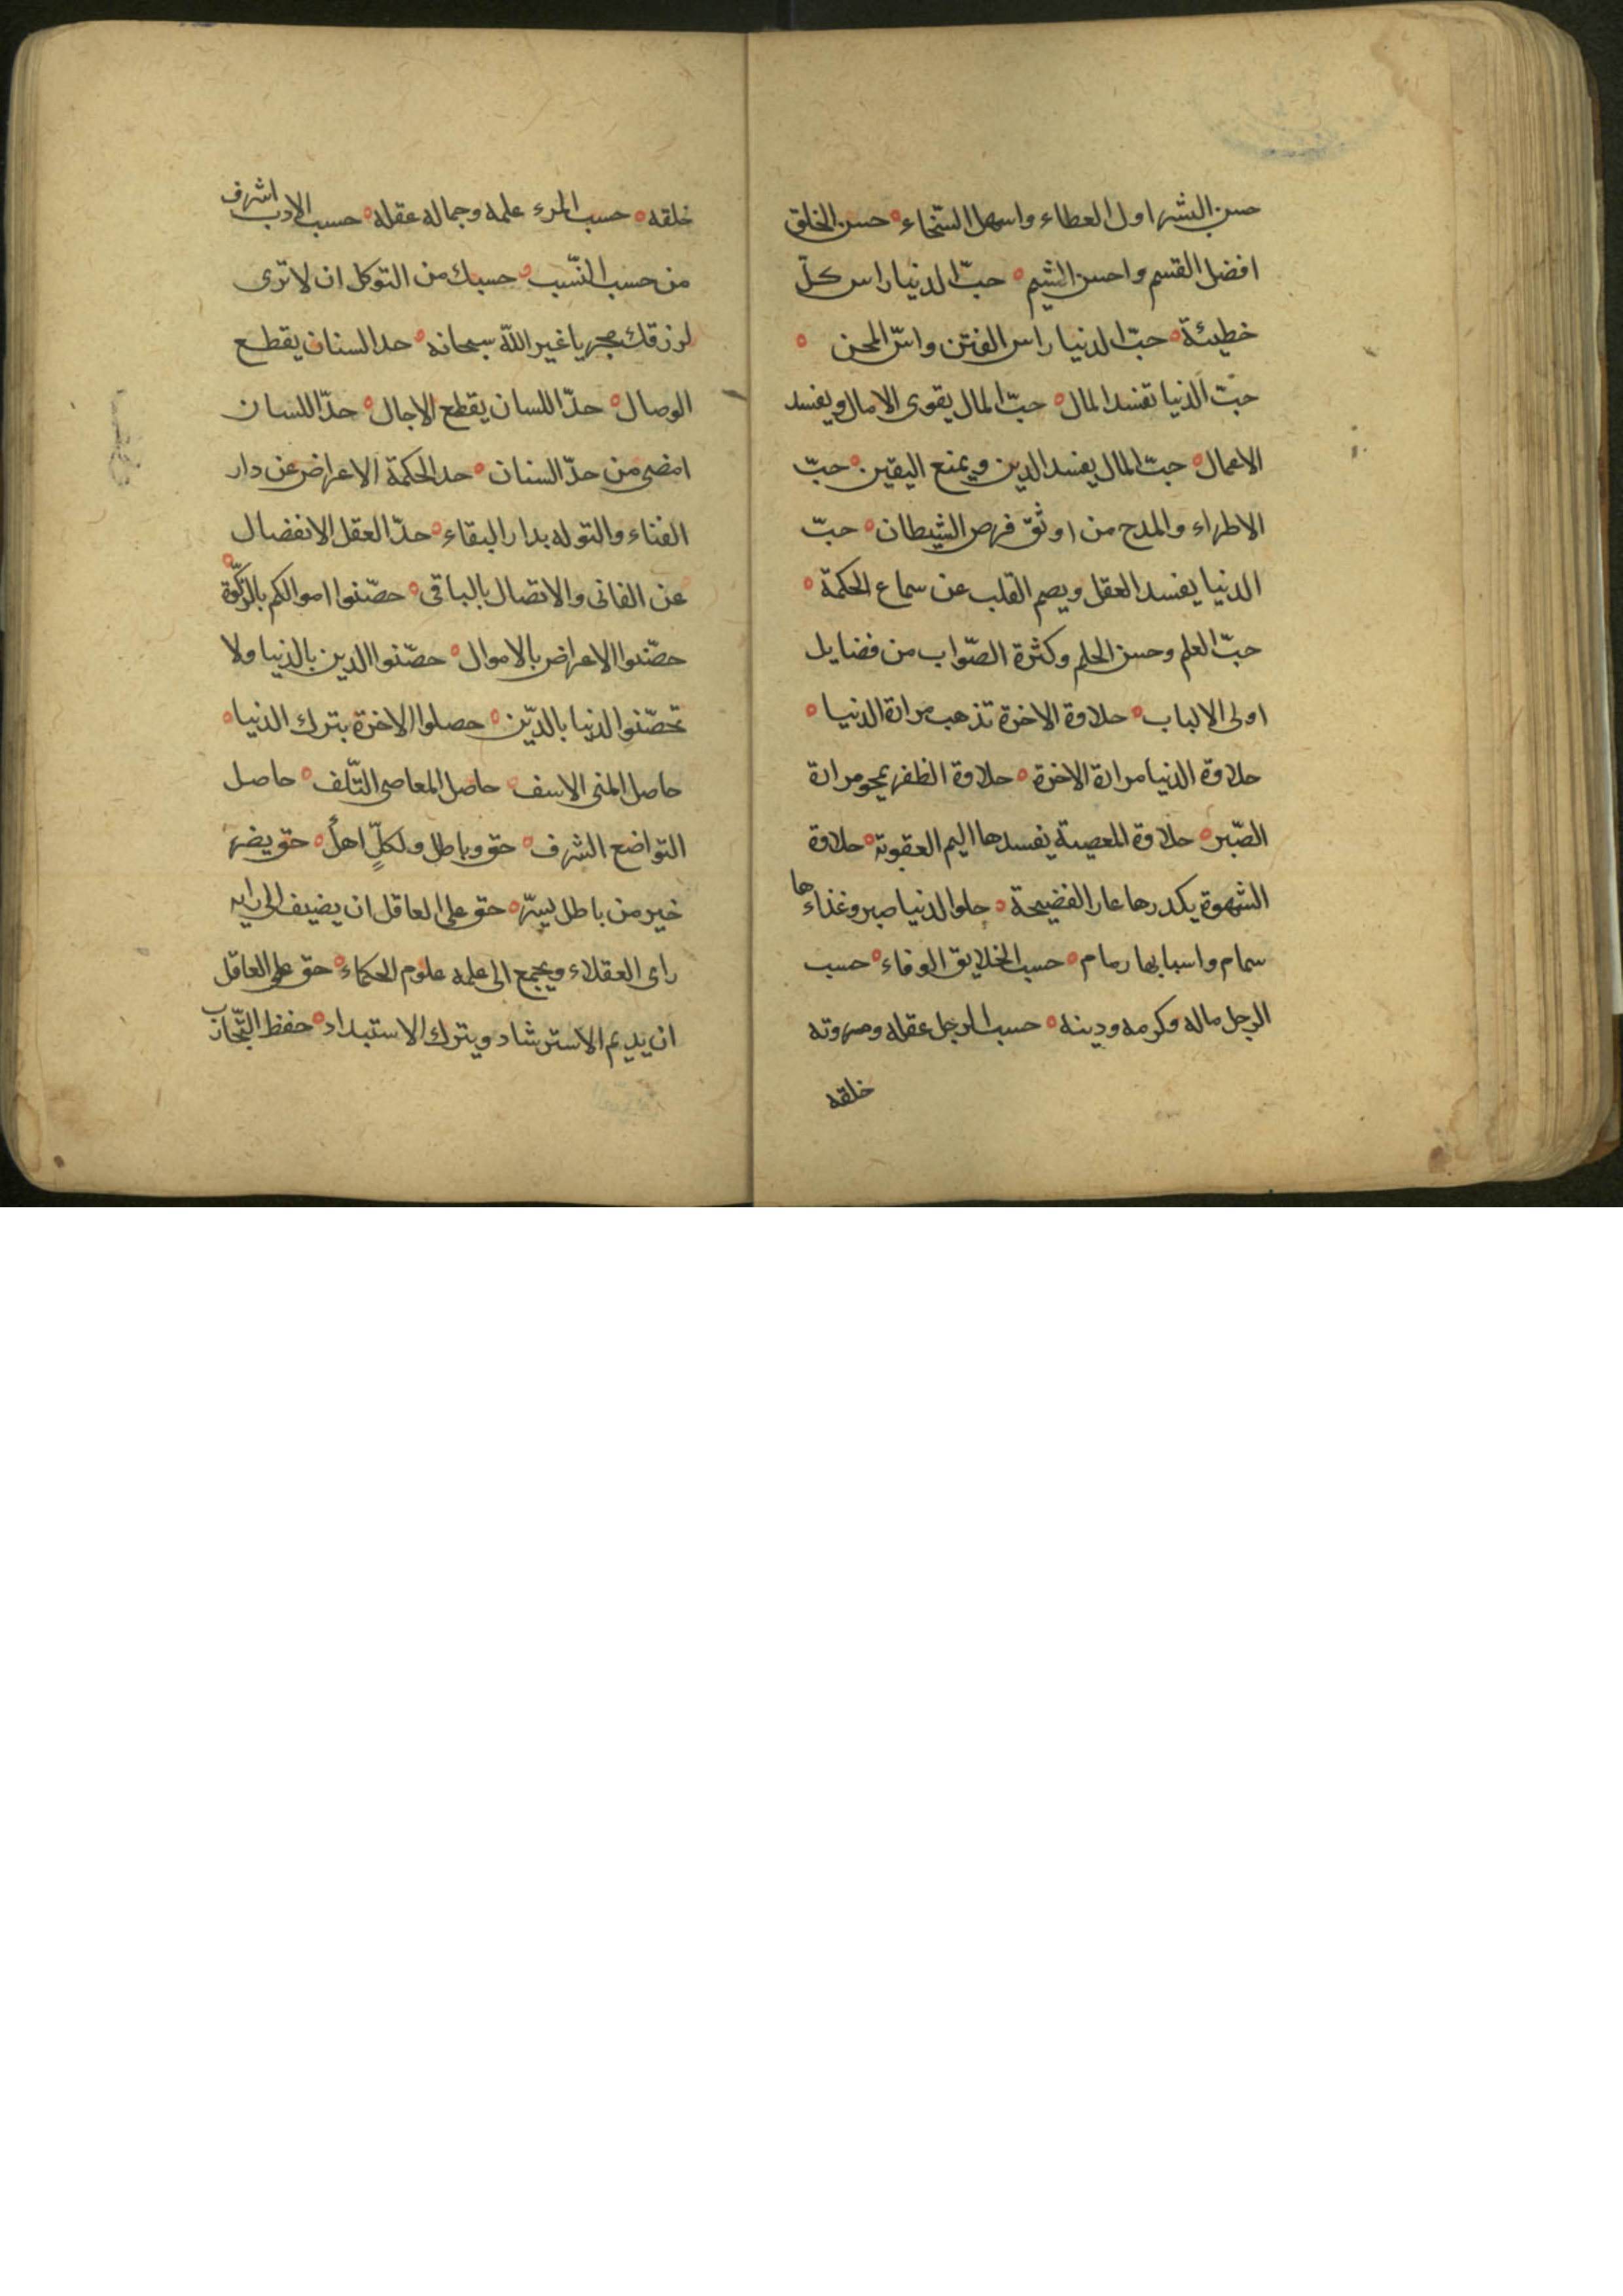 حسن البشر اول العطاء واسهل السّخاء حسن الخلق
افضل القسم واحسن الشيم حبّ الدنيا راس كلّ
خطيئة حبّ الدنيا راس الفتن واسّ المحن
حبّ الدنيا تفسد المال حبّ المال يقوى الامال ويفسد
الاعمال حبّ المال يفسد الدين ويمنع اليقين حبّ
الاطراء والمدح من اوثق فرص الشيطان حبّ
الدنيا يفسد العقل ويصم القلب عن سماع الحكمة
حبّ العلم وحسن الحلم وكثرة الصّواب من فضايل
اولى الالباب حلاوة الاخرة تذهب مرارة الدنيا
حلاوة الدنيا مرارة الاخرة حلاوة الظفر يمحو مرارة
الصّبر حلاوة المعصية يفسدها اليم العقوبة حلاوة
الشهوة يكدرها عار الفضيحة حلو الدنيا صبر وغذاءها
سمام واسبابها رمام حسب الخلايق الوفاء حسب
الرجل ماله وكرمه ودينه حسب الرجل عقله ومروته
خلقه
خلقه حسب المرء علمه وجماله عقله حسب الادب اشرف
من حسب النّسب حسبك من التوكل ان لا ترى
لرزقك مجريا غير اللّه سبحانه حد السنان يقطع
الوصال حدّ اللسان يقطع الاجال حدّ اللسان
امضى من حدّ السنان حد الحكمة الاعراض عن دار
الفناء والتوله بدار البقاء حدّ العقل الانفضال
عن الفانى والاتصال بالباقى حصّنوا اموالكم بالزّكوة
حصّنوا الاعراض بالاموال حصّنوا الدين بالدنيا ولا
تحصّنوا الدنيا بالدّين حصلوا الاخرة بترك الدنيا
حاصل المنى الاسف حاصل المعاصى التّلف حاصل
التواضع الشرف حق وباطل ولكلّ اهل حق يضر
خير من باطل يسرّ حق على العاقل ان يضيف الى رايه
راى العقلاء ويجمع الى علمه علوم الحكماء حق على العاقل
ان يديم الاسترشاد ويترك الاستبداد حفظ التّجارب